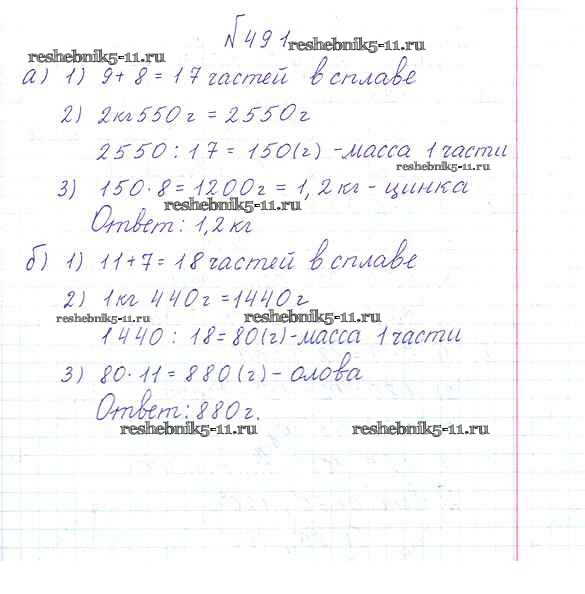 №491
reshebnik5-11.ru
reshebnik5-11.ru
а) 1) 9+8=17 частей в сплаве
2) 2кг550г = 2550г
2550 : 17 = 150(г) - масса 1 части
reshebnik5-11.ru
3) 150·8=1200г = 1,2 кг - цинка
reshebnik5-11.ru
Ответ: 1,2 кг
б) 1) 11+7=18 частей в сплаве
2) 1кг 440г =1440г
reshebnik5-11.ru
reshebnik5-11.ru
1440 : 18=80(г)-масса 1 части
3) 80·11=880(г) - олова
Ответ: 880г.
reshebnik5-11.ru
reshebnik5-11.ru